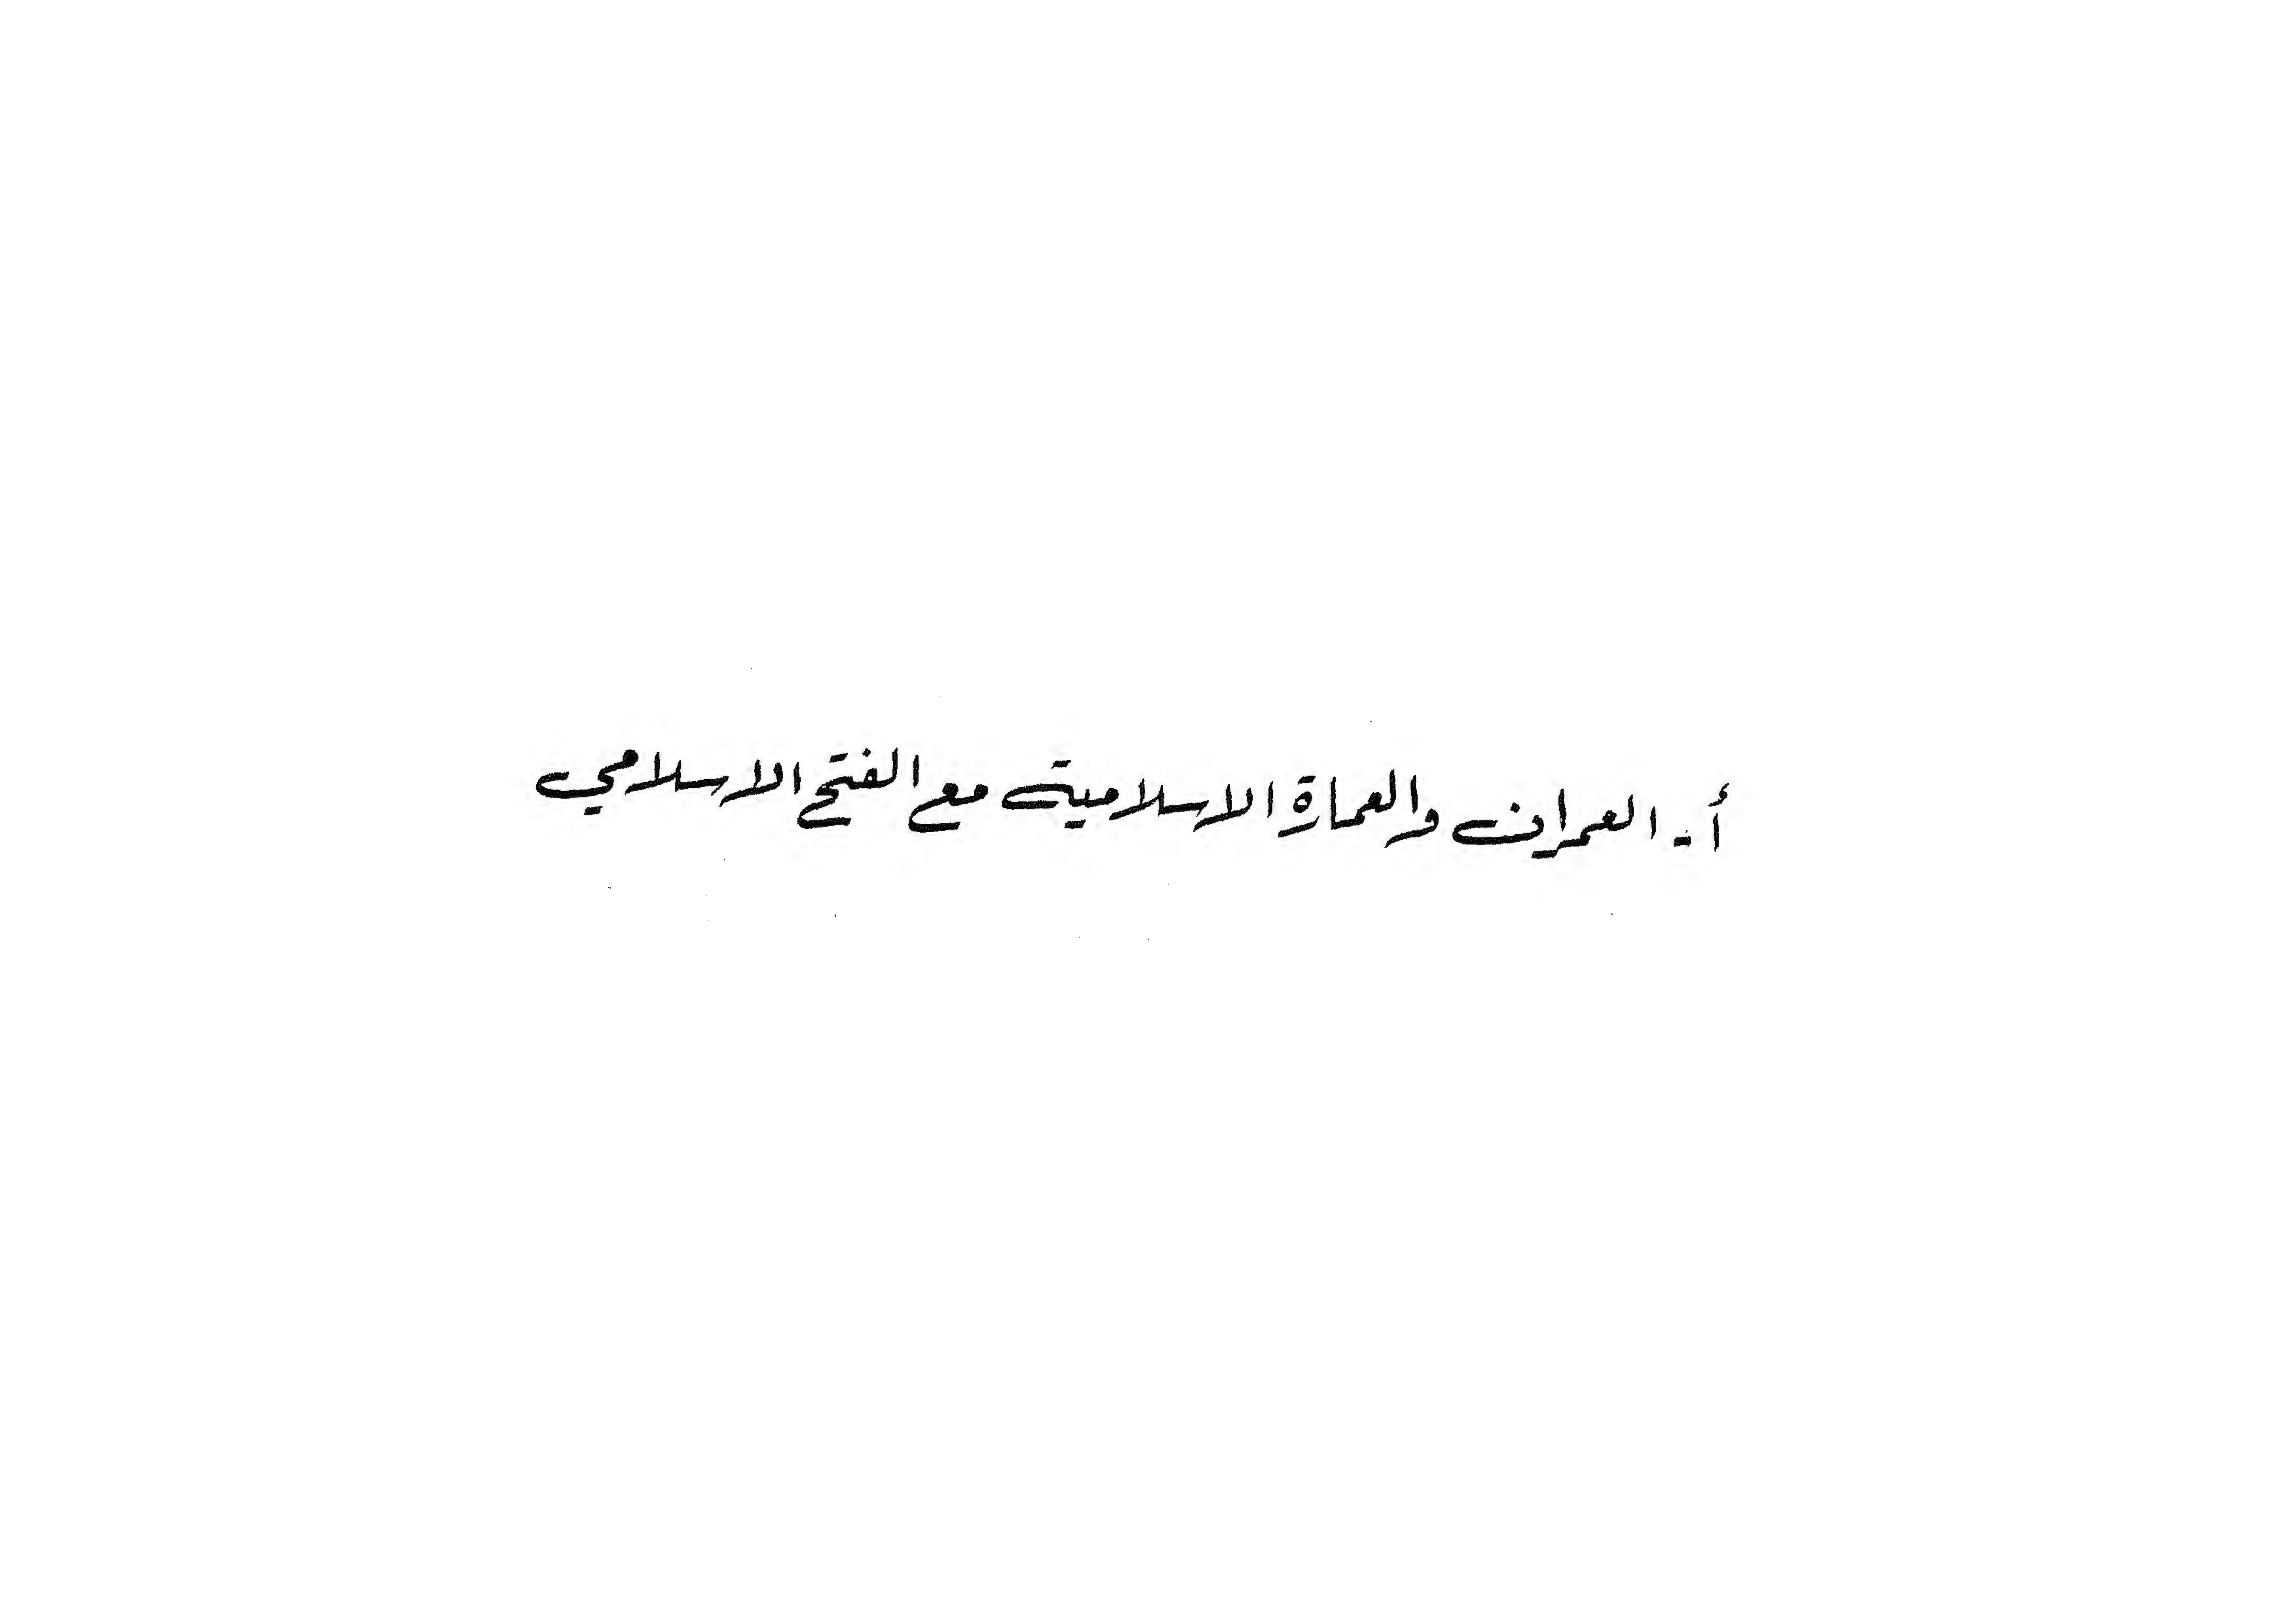 أ- العمران والعمارة الاسلامية مع الفتح الاسلامي